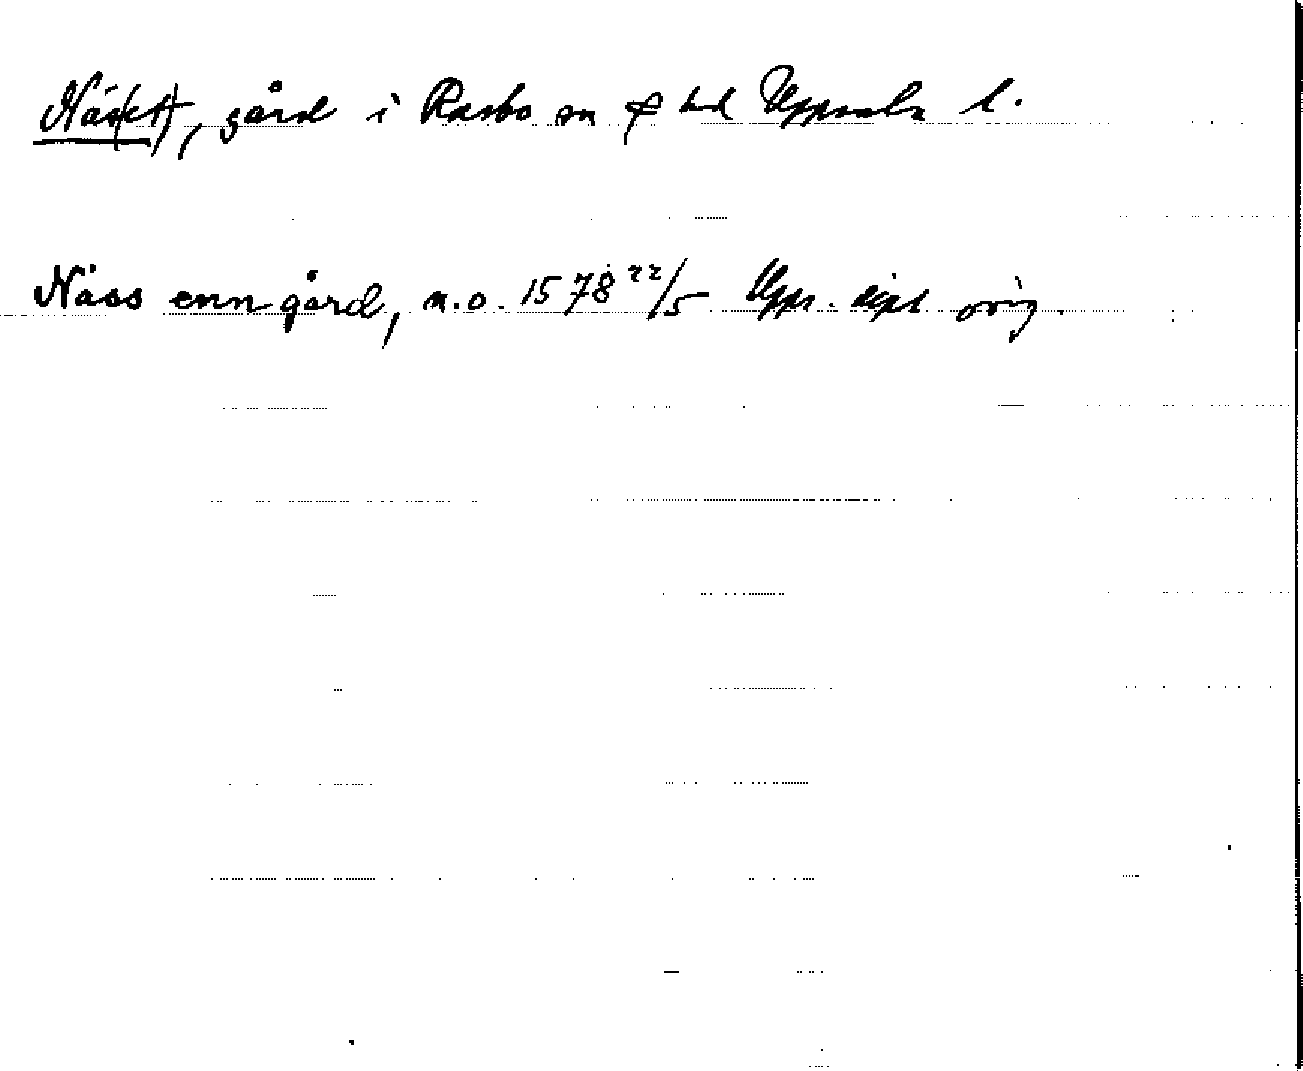 Näs(et), gård i Rasbo sn o hd Uppsala l.
Näss enn gård, n.o. 1578 22/5 Upps. dipl orig.